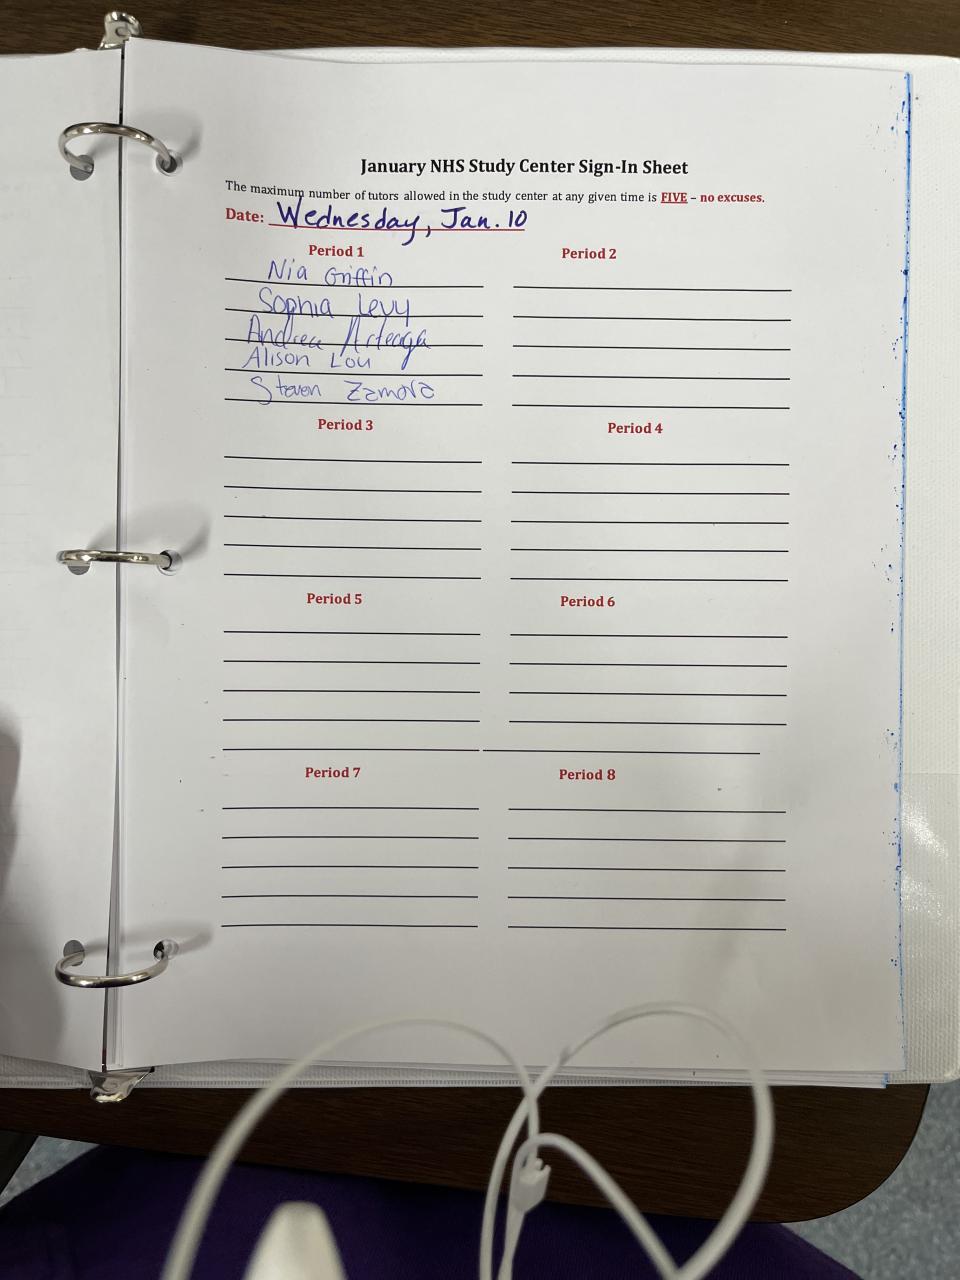 January NHS Study Center Sign-In Sheet
The maximum number of tutors allowed in the study center at any given time is FIVE – no excuses.
Date: Wednesday, Jan. 10
Period 1
Nia Griffin
Sophia Levy
Andrea Arteaga
Alison Lou
Steven Zamora
Period 2
Period 3
Period 4
Period 5
Period 6
Period 7
Period 8